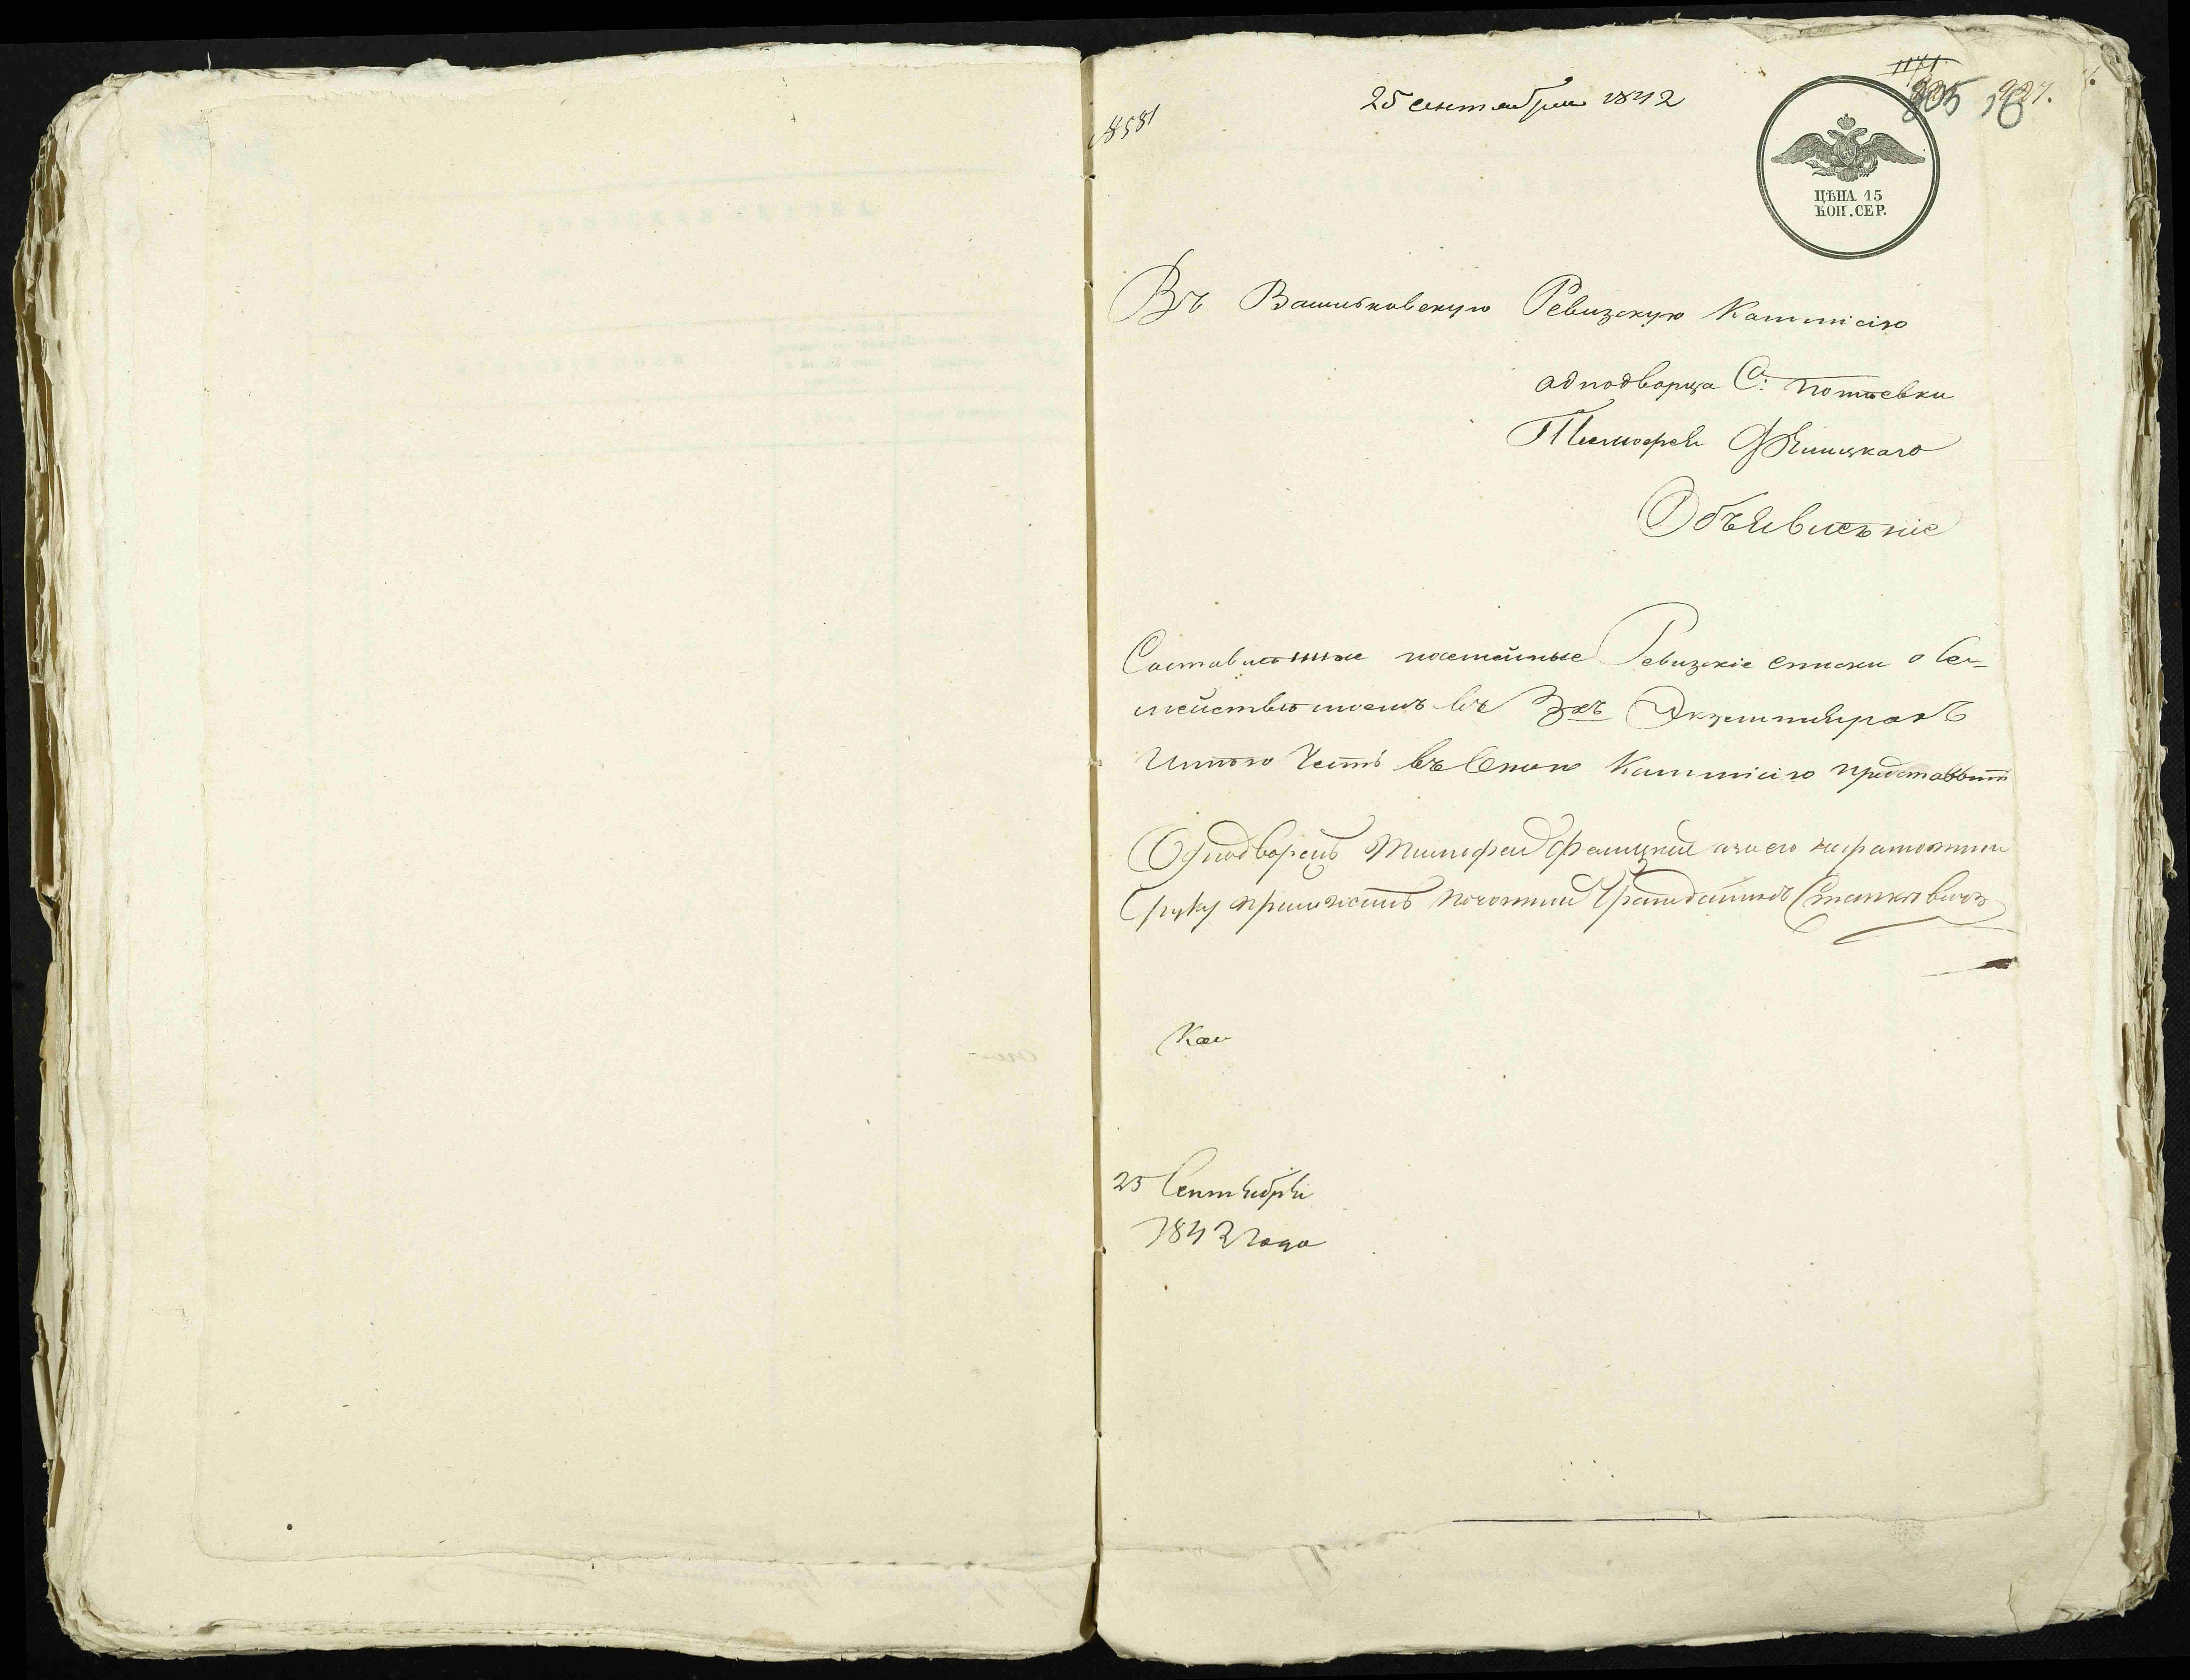 25 сентября 1842
№ 8581
805 927.
ЦѢНА 15
КОП. СЕР.
Въ Васильковскую Ревизскую Коммісію
однодворца С: Потіевки
Тимофея Фялицкаго
Объявленіе
Составленные посемейные Ревизскіе списки о Се-
мействѣ моемъ въ 3хъ Экземплярахъ
Имѣю Честь въ Оную Коммисію представить
Однодворецъ Тимофей Фялицкий а за его неграмотнии
руку приложилъ почотний Гражданинъ Станкевичъ
25 Сентября
1842 года